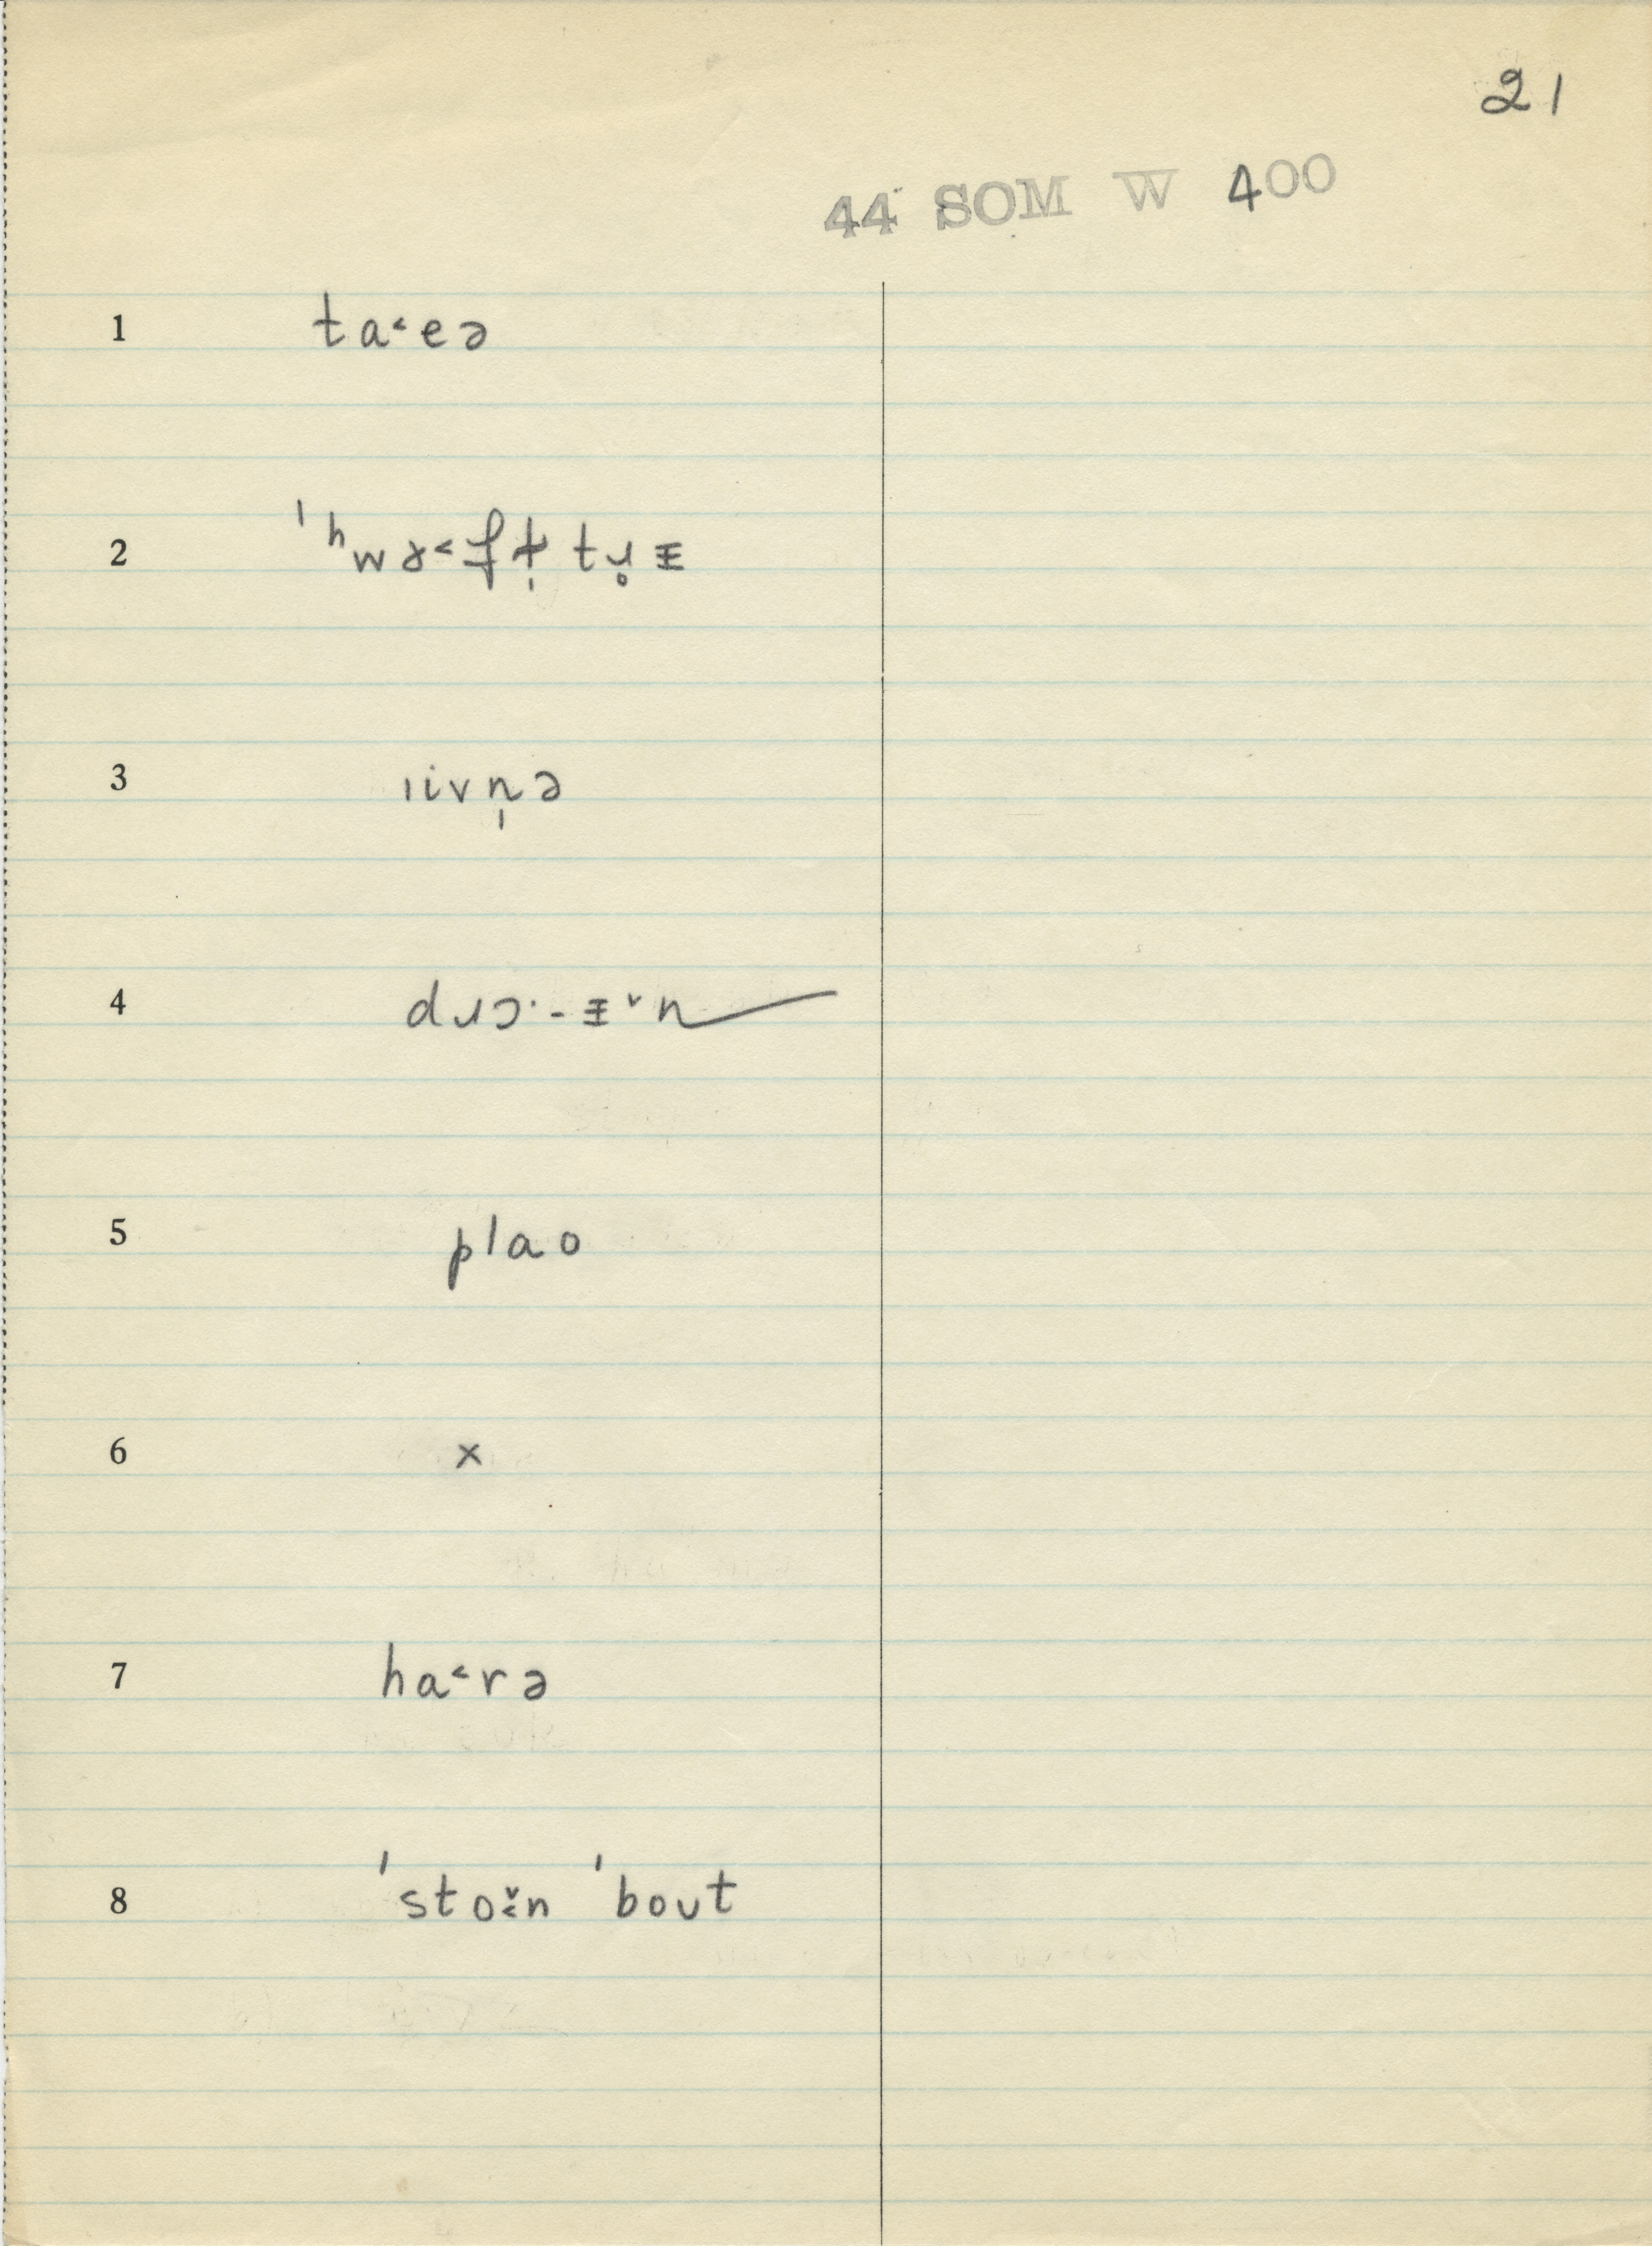 21
44 SOM W 400
1 ta˂eə
2 ˈʰwɤ˂ʄt̩ tɹ̥ᵻ
3 ıivn̩ə
4 dɹɔ·-ᵻ˅n
5 plao
6 x
7 ha˂rə
8 ˈstoɪ̆n ˈbout